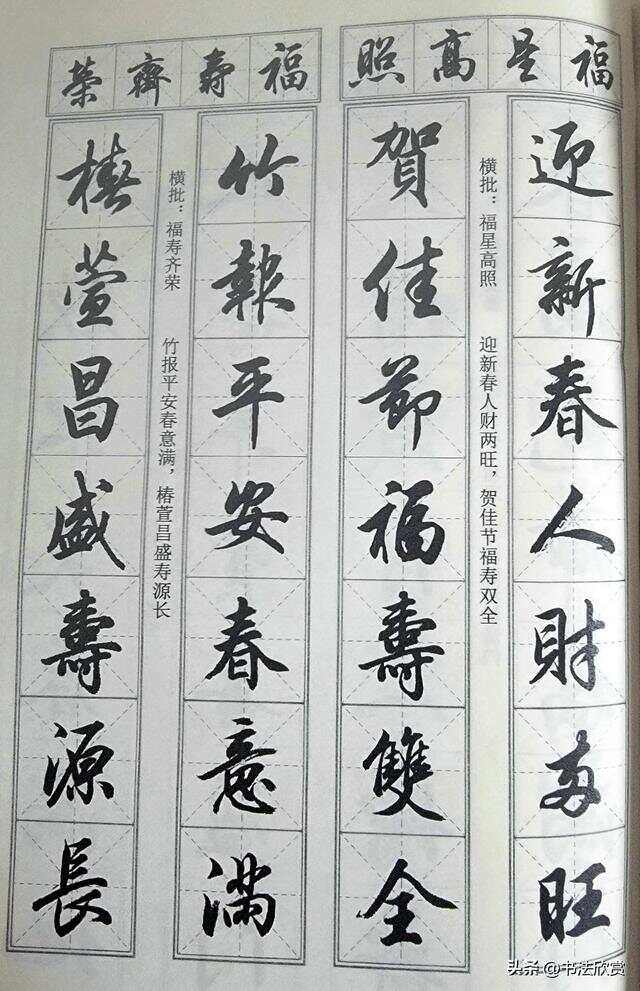 福星高照
迎新春人財兩旺
横批：福星高照
迎新春人财两旺，贺佳节福寿双全
賀佳節福壽雙全
福壽齊榮
竹報平安春意滿
横批：福寿齐荣
竹报平安春意满，椿萱昌盛寿源长
椿萱昌盛壽源長
头条@书法欣赏